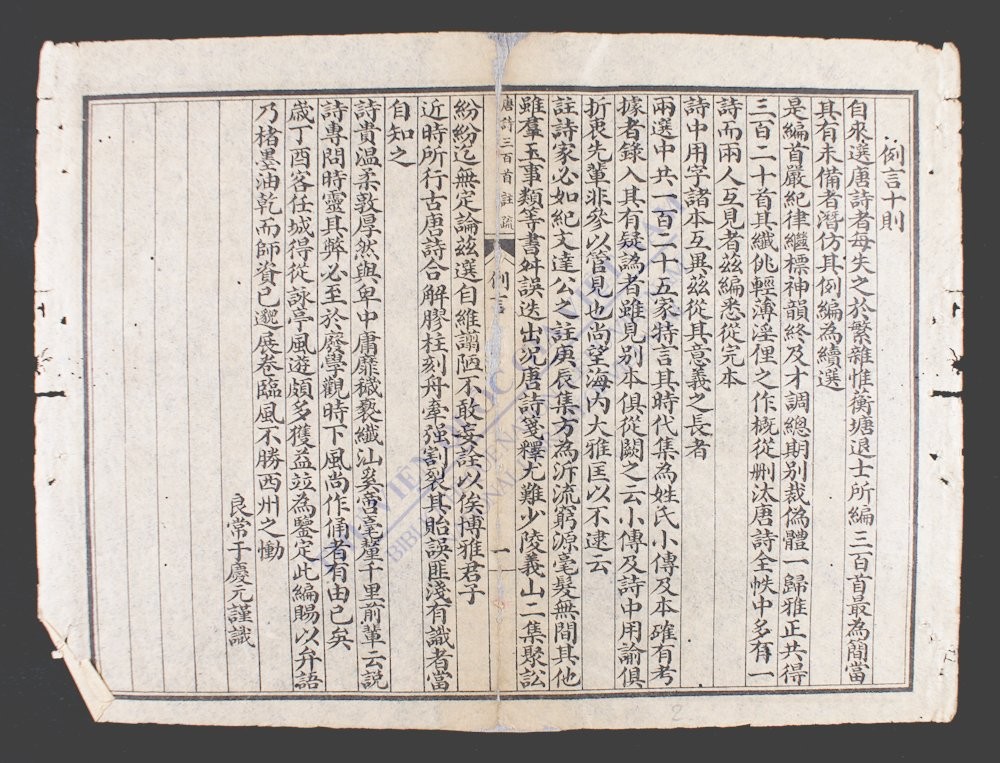 例言十則
自來選唐詩者每失之於繁雜惟蘅塘退士所編三百首最為簡當
其有未備者潛仿其例編為續選
是編首嚴紀律繼標神韻終及才調總期別裁偽體一歸雅正共得
三百二十首其纖佻輕薄淫俚之作概從刪汰唐詩全帙中多有一
詩而兩人互見者茲編悉從完本
詩中用字諸本互異茲從其意義之長者
兩選中共一百二十五家特言其時代集為姓氏小傳及本確有考
據者錄入其有疑譌者雖見別本俱從闕之云小傳及詩中用諭俱
折衷先輩非參以管見也尚望海內大雅匡以不逮云
註詩家必如紀文達公之註庚辰集方為泝流窮源毫髮無間其他
雖羣玉事類等書舛誤迭出況唐詩箋釋尤難少陵義山二集聚訟
唐詩三百首註疏
例言
一
紛紛迄無定論茲選自維譾陋不敢妄詮以俟博雅君子
近時所行古唐詩合解膠柱刻舟牽强割裂其貽誤匪淺有識者當
自知之
詩貴温柔敦厚然與卑中庸靡穢褻纖汕奚啻毫釐千里前輩云說
詩專問時靈其弊必至於廢學觀時下風尚作俑者有由已矣
歲丁酉客任城得從詠亭風遊頗多獲益竝為鑒定此編賜以弁語
乃楮墨油乾而師資已邈展卷臨風不勝西州之慟
良常于慶元謹識